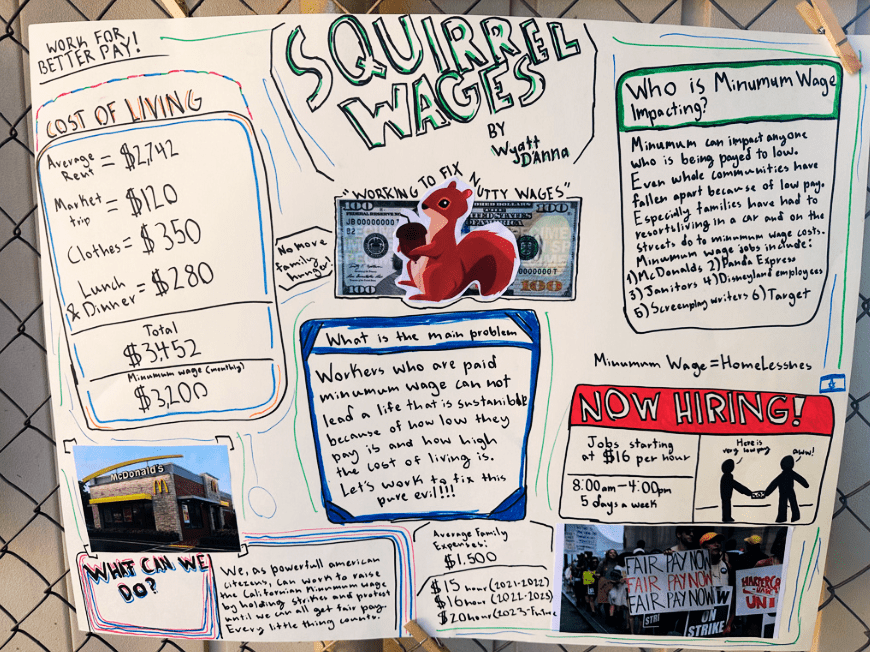 WORK FOR
BETTER PAY!
SQUIRREL
WAGES
BY
Wyatt
D'Anna
COST OF LIVING
Average
Rent = $2,742
Market
trip = $120
Clothes = $350
Lunch
& Dinner = $280
Total
$3,452
Minumum wage (monthly)
$3,200
"WORKING TO FIX NUTTY WAGES"
100
FEDERAL RESERVE
UNITED STATES
100
100
100
No more
family
hunger!
Who is Minumum Wage
Impacting?
Minumum can impact anyone
who is being payed to low.
Even whole communities have
fallen apart because of low pay.
Especially families have had to
resort living in a car and on the
streets do to minumum wage costs.
Minumum wage jobs include:
1) McDonalds 2) Panda Express
3) Janitors 4) Disneyland employees
5) Screenplay writers 6) Target
What is the main problem
Workers who are paid
minumum wage can not
lead a life that is sustanible
because of how low they
pay is and how high
the cost of living is.
Let's work to fix this
pure evil!!!
Minumum Wage = HomeLesshes
NOW HIRING!
Jobs starting
at $16 per hour
8:00am-4:00pm
5 days a week
Here is
very low pay
aww!
McDonald's
WHAT CAN WE
DO?
We, as powerfull american
citezens, can work to raise
the Californian minumum wage
by holding strikes and protest
until we can all get fair pay.
Every little thing counts.
Average Family
Expenses:
$1,500
$15 hour (2021-2022)
$16 hour (2022-2023)
$20 hour (2023-Future
FAIR PAY NOW
FAIR PAY NOW
FAIR PAY NOW
ON
STRIKE